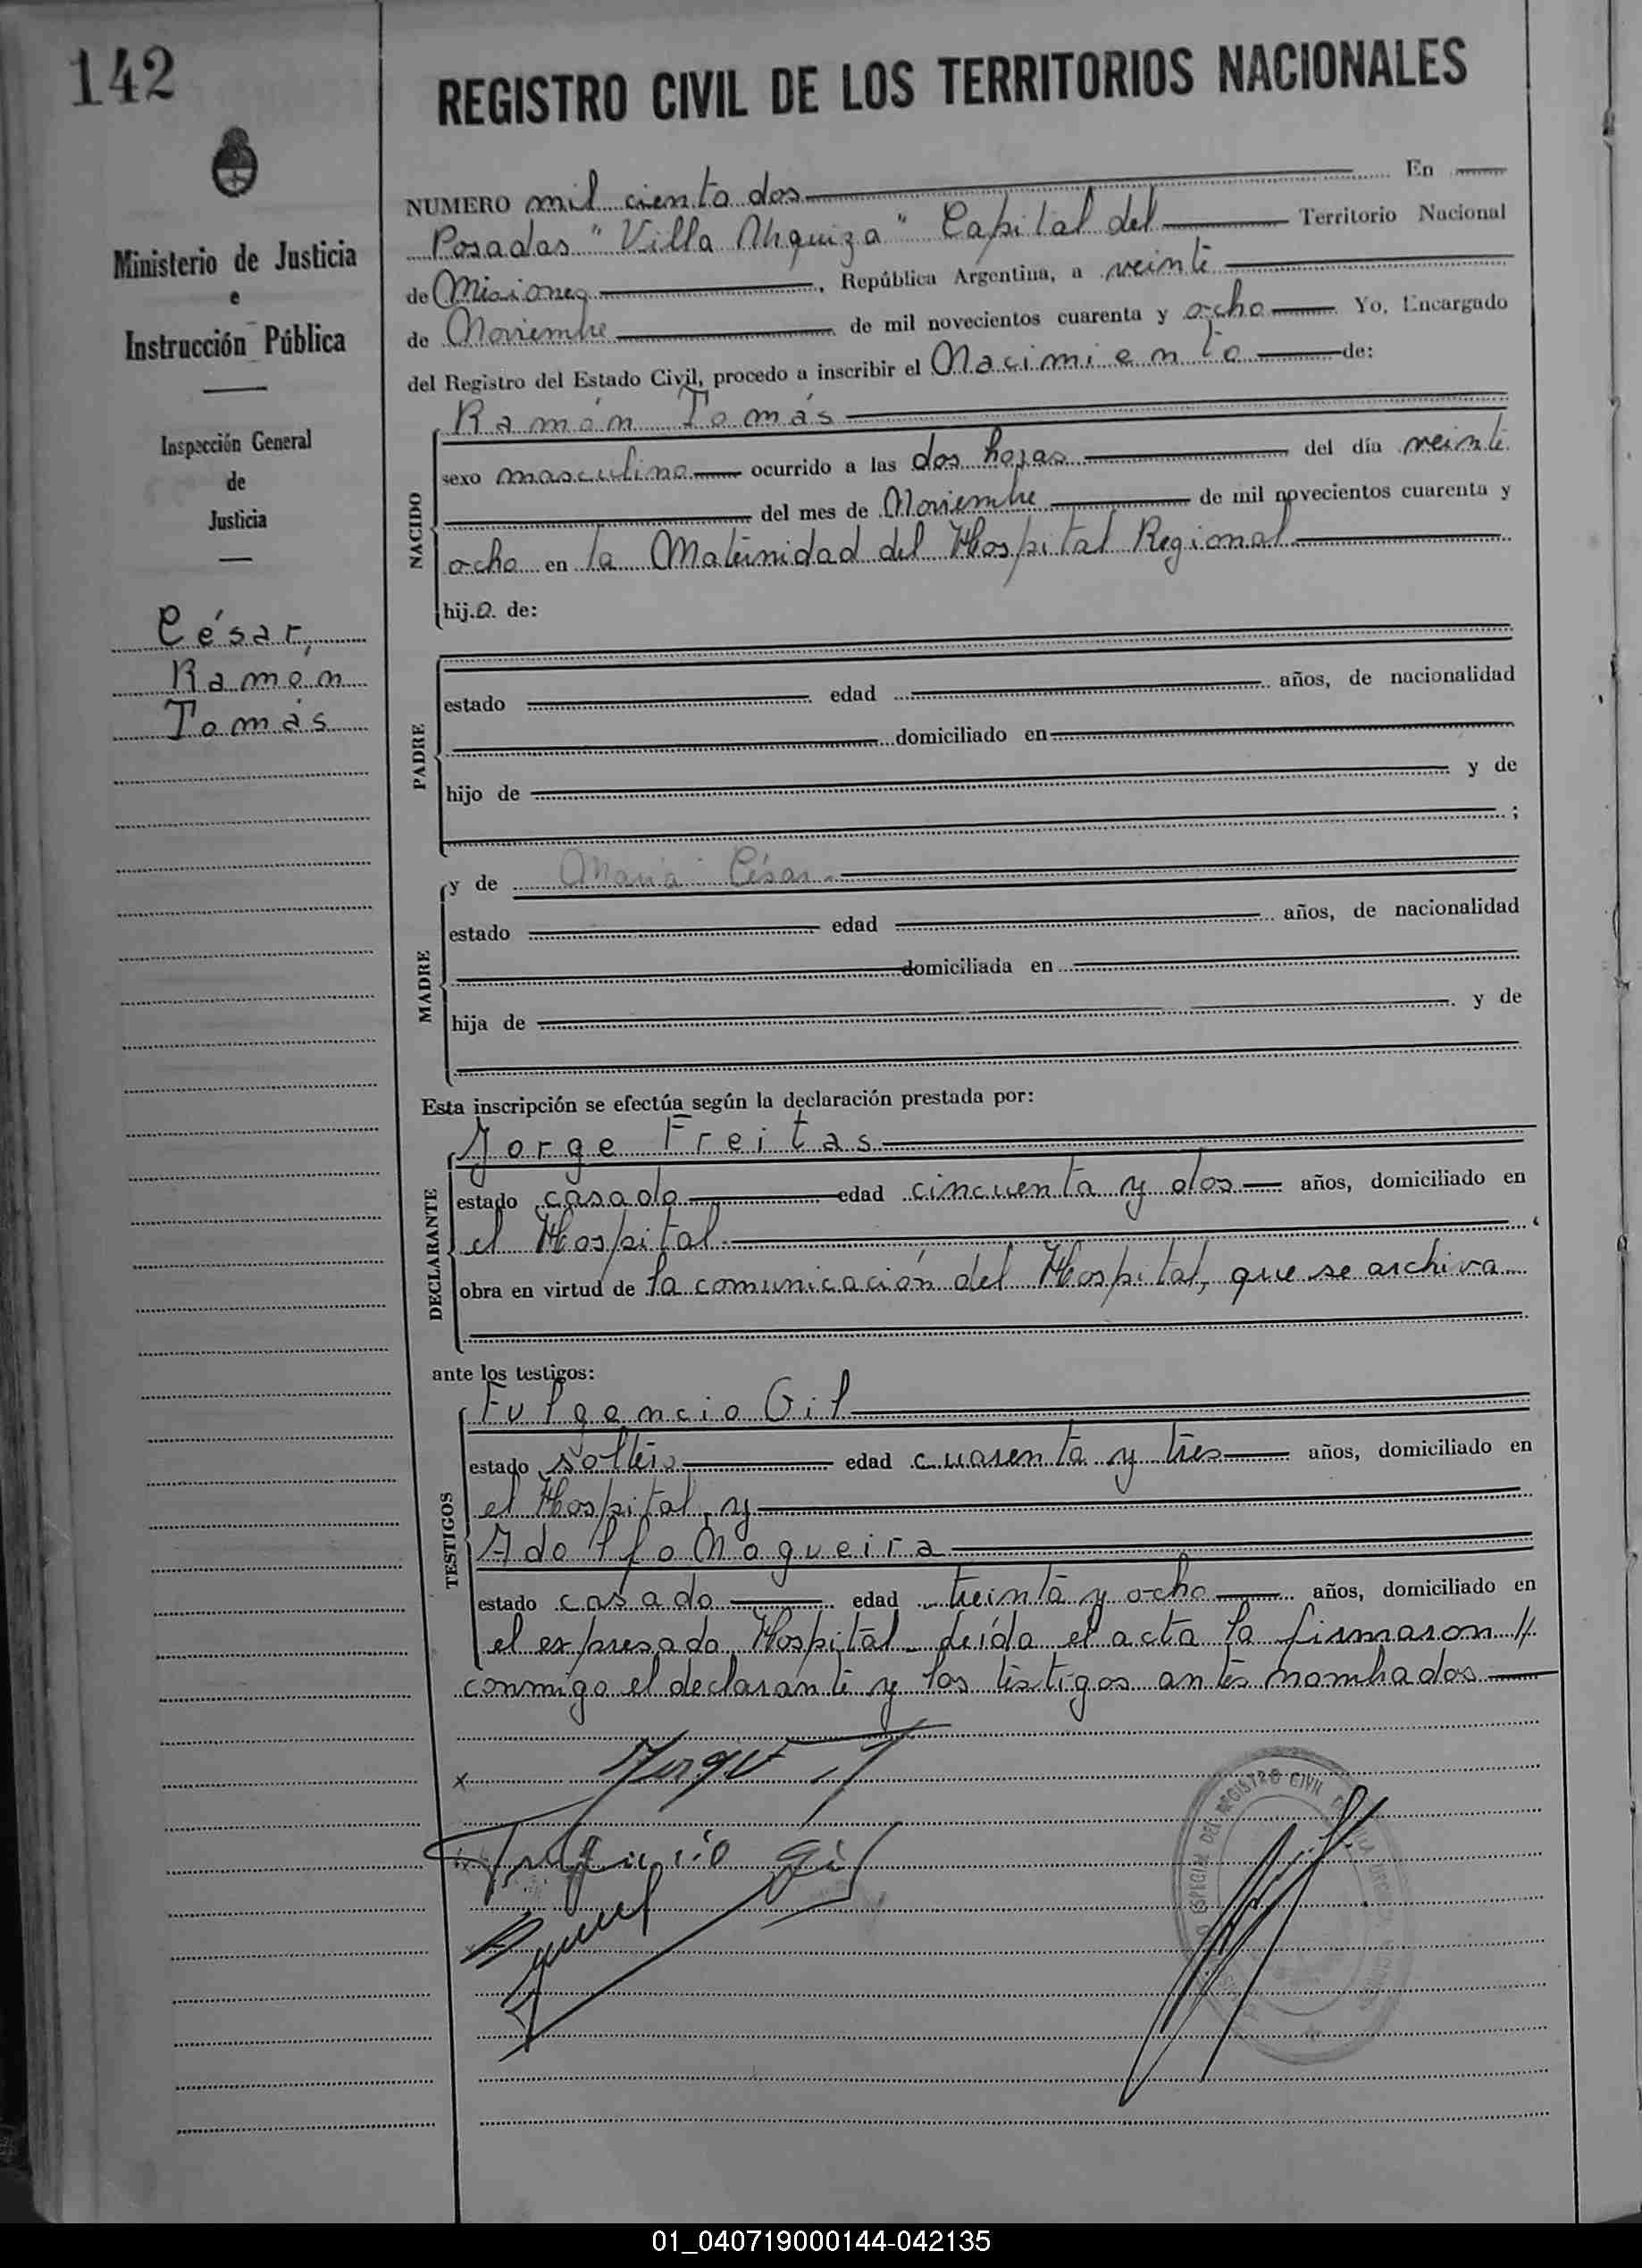 142
REGISTRO CIVIL DE LOS TERRITORIOS NACIONALES
Ministerio de Justicia
e
Instrucción Pública
Inspección General
de
Justicia
César,
Ramón
Tomás
NUMERO mil ciento dos En
Posadas "Villa Urquiza" Capital del Territorio Nacional
de Misiones, República Argentina, a veinte
de Noviembre de mil novecientos cuarenta y ocho Yo, Encargado
del Registro del Estado Civil, procedo a inscribir el Nacimiento de:
NACIDO
Ramón Tomás
sexo masculino ocurrido a las dos horas del día veinte
del mes de Noviembre de mil novecientos cuarenta y
ocho en la Maternidad del Hospital Regional
hijo de:
PADRE
estado edad años, de nacionalidad
domiciliado en
hijo de y de
;
MADRE
y de María César.
estado edad años, de nacionalidad
domiciliada en
hija de y de
Esta inscripción se efectúa según la declaración prestada por:
DECLARANTE
Jorge Freitas
estado casado edad cincuenta y dos años, domiciliado en
el Hospital
obra en virtud de la comunicación del Hospital, que se archiva
ante los testigos:
TESTIGOS
Fulgencio Gil
estado soltero edad cuarenta y tres años, domiciliado en
el Hospital, y
Adolfo Nogueira
estado casado edad treinta y ocho años, domiciliado en
el expresado Hospital. Leída el acta la firmaron //
conmigo el declarante y los testigos antes nombrados
x Jorge
Fulgencio Gil
ESPECIAL DEL REGISTRO CIVIL
01_040719000144-042135